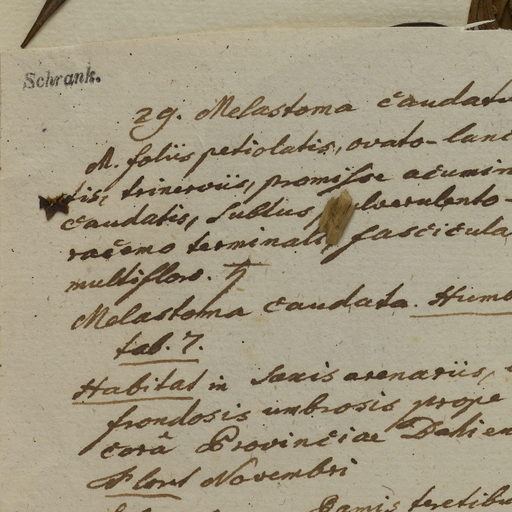 Schrank.
29. Melastoma caudatu
M. foliis petiolatis, ovato-lanc
tis, trinerviis, promisse acumin
caudatis, subtus pulverulento-
racemo terminali, fascicula
multifloro. ♄
Melastoma caudata. Humb
tab. 7.
Habitat in saxis arenariis,
frondosis umbrosis prope
corâ Provinciae Bahien
Floret Novembri
Ramis teretibu